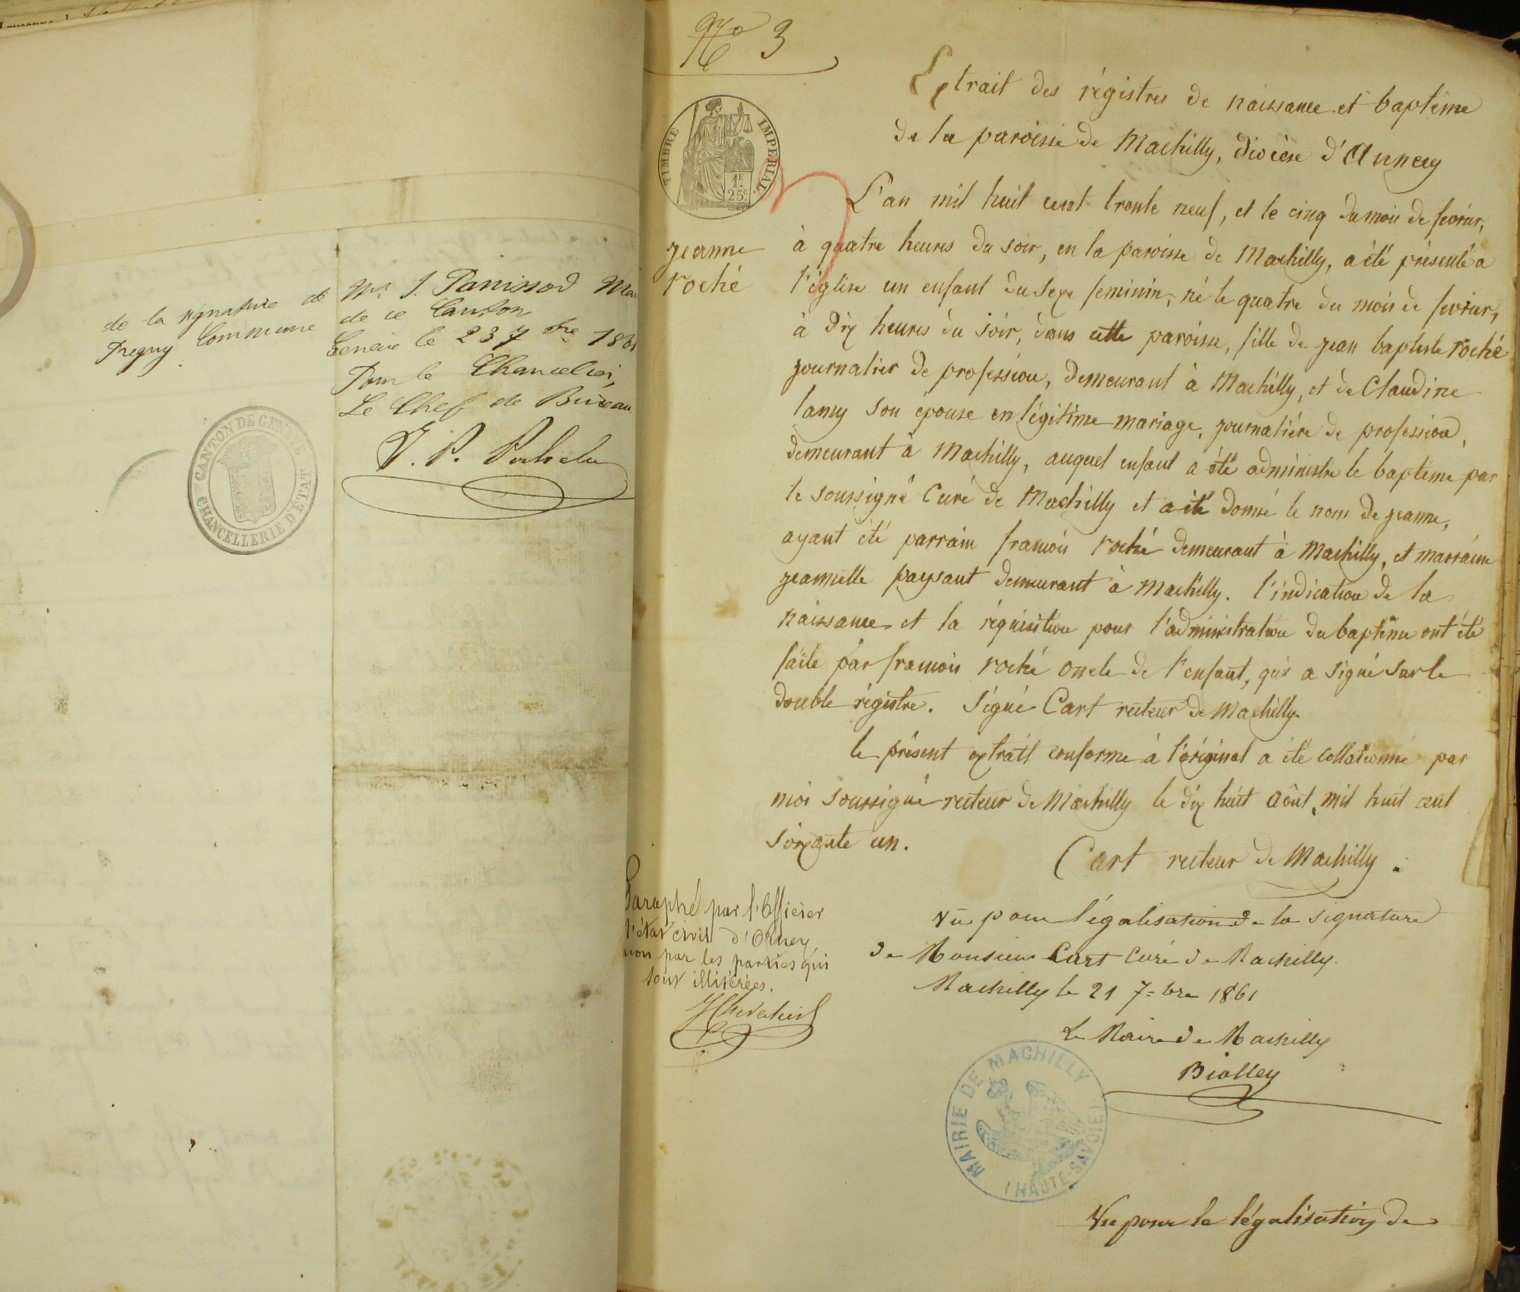 de la signature de
Mr J. Panissod
Pregny
Commune
de ce Canton
Genève le 23 7bre 1861
Pour le Chancelier,
Le Chef de Bureau
J. P.
CANTON DE GENÈVE
CHANCELLERIE D'ÉTAT
No 3
TIMBRE IMPERIAL
1F
25c
jeanne
roché
Extrait des régistres de naissance et baptême
de la paroisse de Machilly, diocèse d'Annecy
L'an mil huit cent trente neuf, et le cinq du mois de fevrier,
à quatre heures du soir, en la paroisse de Machilly, a été présenté a
l'église un enfant du sexe feminin, né le quatre du mois de fevrier,
à dix heures du soir, dans cette paroisse, fille de jean baptiste roché
journalier de profession, demeurant à Machilly, et de Claudine
lamy son épouse en légitime mariage, journalière de profession,
demeurant à Machilly, auquel enfant a été administré le baptême par
le soussigné Curé de Machilly et a été donné le nom de jeanne,
ayant été parrain francois roché demeurant à Machilly, et marraine
jeannette paysant demeurant à Machilly. l'indication de la
naissance et la réquisition pour l'administration du baptême ont été
faite par francois roché oncle de l'enfant, qui a signé sur le
double régistre. Signé Cart recteur de Machilly.
le présent extrait conforme à l'original a été collationné par
moi soussigné recteur de Machilly le dix huit août mil huit cent
soixante un.
Cart recteur de Machilly.
Paraphé par l'Officier
l'état civil d'Orney,
non par les parties qui
sont illitérées.
JChevalier
Vu pour légalisation de la signature
de Monsieur Cart curé de Machilly.
Machilly le 21 7=bre 1861
Le Maire de Machilly
Biolley
MAIRIE DE MACHILLY
(HAUTE-SAVOIE)
Vu pour la légalisation de